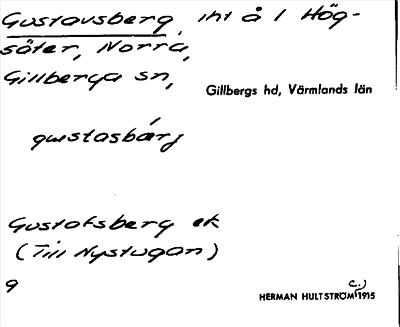 Gustavsberg, iht å 1 Hög-
säter, Norra,
Gillberga sn,
Gillbergs hd, Värmlands län
gustasbárj
Gustafsberg ek
(Till Nystugan)
9
c.)
HERMAN HULTSTRÖM 1915